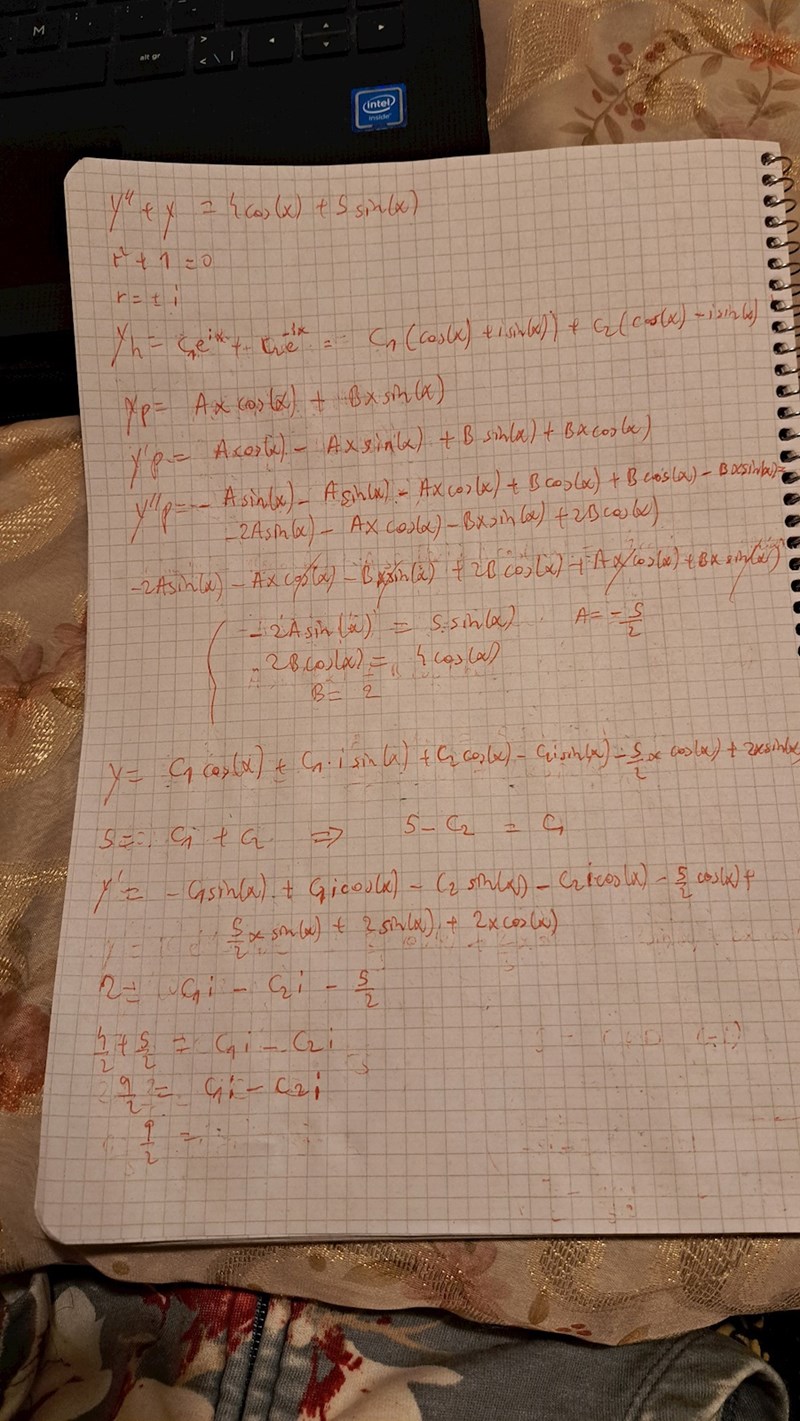 M
alt gr
>
< \ |
intel
inside
y'' + y = 4cos(x) + 5 sin(x)
r² + 1 = 0
r = ± i
yh = C1e^ix + C2e^-ix = C1(cos(x) + isin(x)) + C2(cos(x) - isin(x)
yp = Axcos(x) + Bxsin(x)
y'p = Acos(x) - Axsin(x) + B sin(x) + Bxcos(x)
y''p = - Asin(x) - Asin(x) - Axcos(x) + Bcos(x) + Bcos(x) - Bxsin(x) =
-2Asin(x) - Axcos(x) - Bxsin(x) + 2Bcos(x)
-2Asin(x) - Axcos(x) - Bxsin(x) + 2Bcos(x) + Axcos(x) + Bxsin(x)
-2Asin(x) = 5 sin(x) A = -5/2
2Bcos(x) = 4cos(x)
B = 2
y = C1cos(x) + C1·isin(x) + C2cos(x) - C2isin(x) - 5/2x cos(x) + 2xsin(x
5 = C1 + C2 ⇒ 5 - C2 = C1
y' = -C1sin(x) + C1icos(x) - C2sin(x) - C2icos(x) - 5/2 cos(x) +
5/2x sin(x) + 2sin(x) + 2xcos(x)
2 = C1i - C2i - 5/2
4/2 + 5/2 = C1i - C2i
9/2 = C1i - C2i
9/2 =